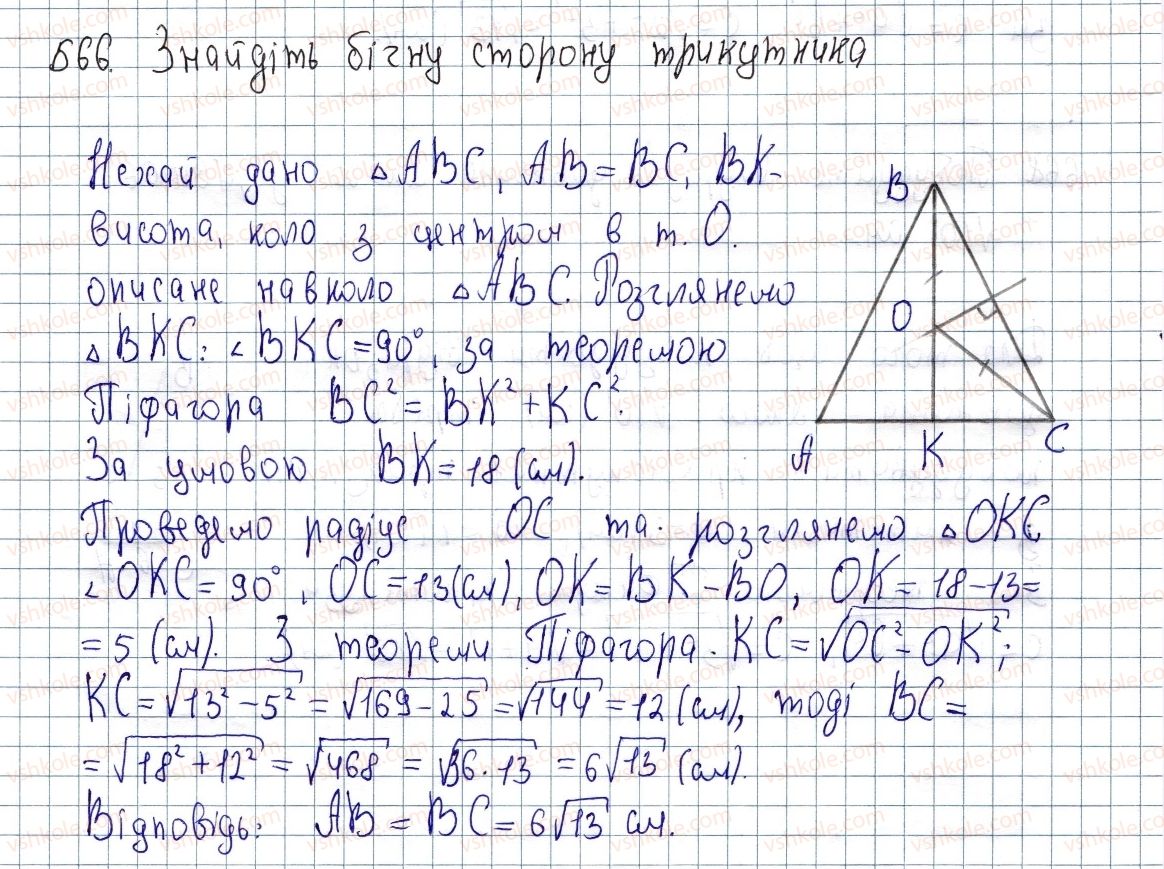 566. Знайдіть бічну сторону трикутника
Нехай дано △ABC, AB = BC, BK-
висота, коло з центром в т. O.
описане навколо △ABC. Розглянемо
△BKC: ∠BKC = 90°, за теоремою
Піфагора BC² = BK² + KC².
За умовою BK = 18 (см).
Проведемо радіус OC та розглянемо △OKC
∠OKC = 90°, OC = 13(см), OK = BK - BO, OK = 18 - 13 =
= 5 (см). З теореми Піфагора. KC = √(OC² - OK²);
KC = √(13² - 5²) = √(169 - 25) = √144 = 12 (см), тоді BC =
= √(18² + 12²) = √468 = √(36 · 13) = 6√13 (см).
Відповідь: AB = BC = 6√13 см.
B
O
A
K
C